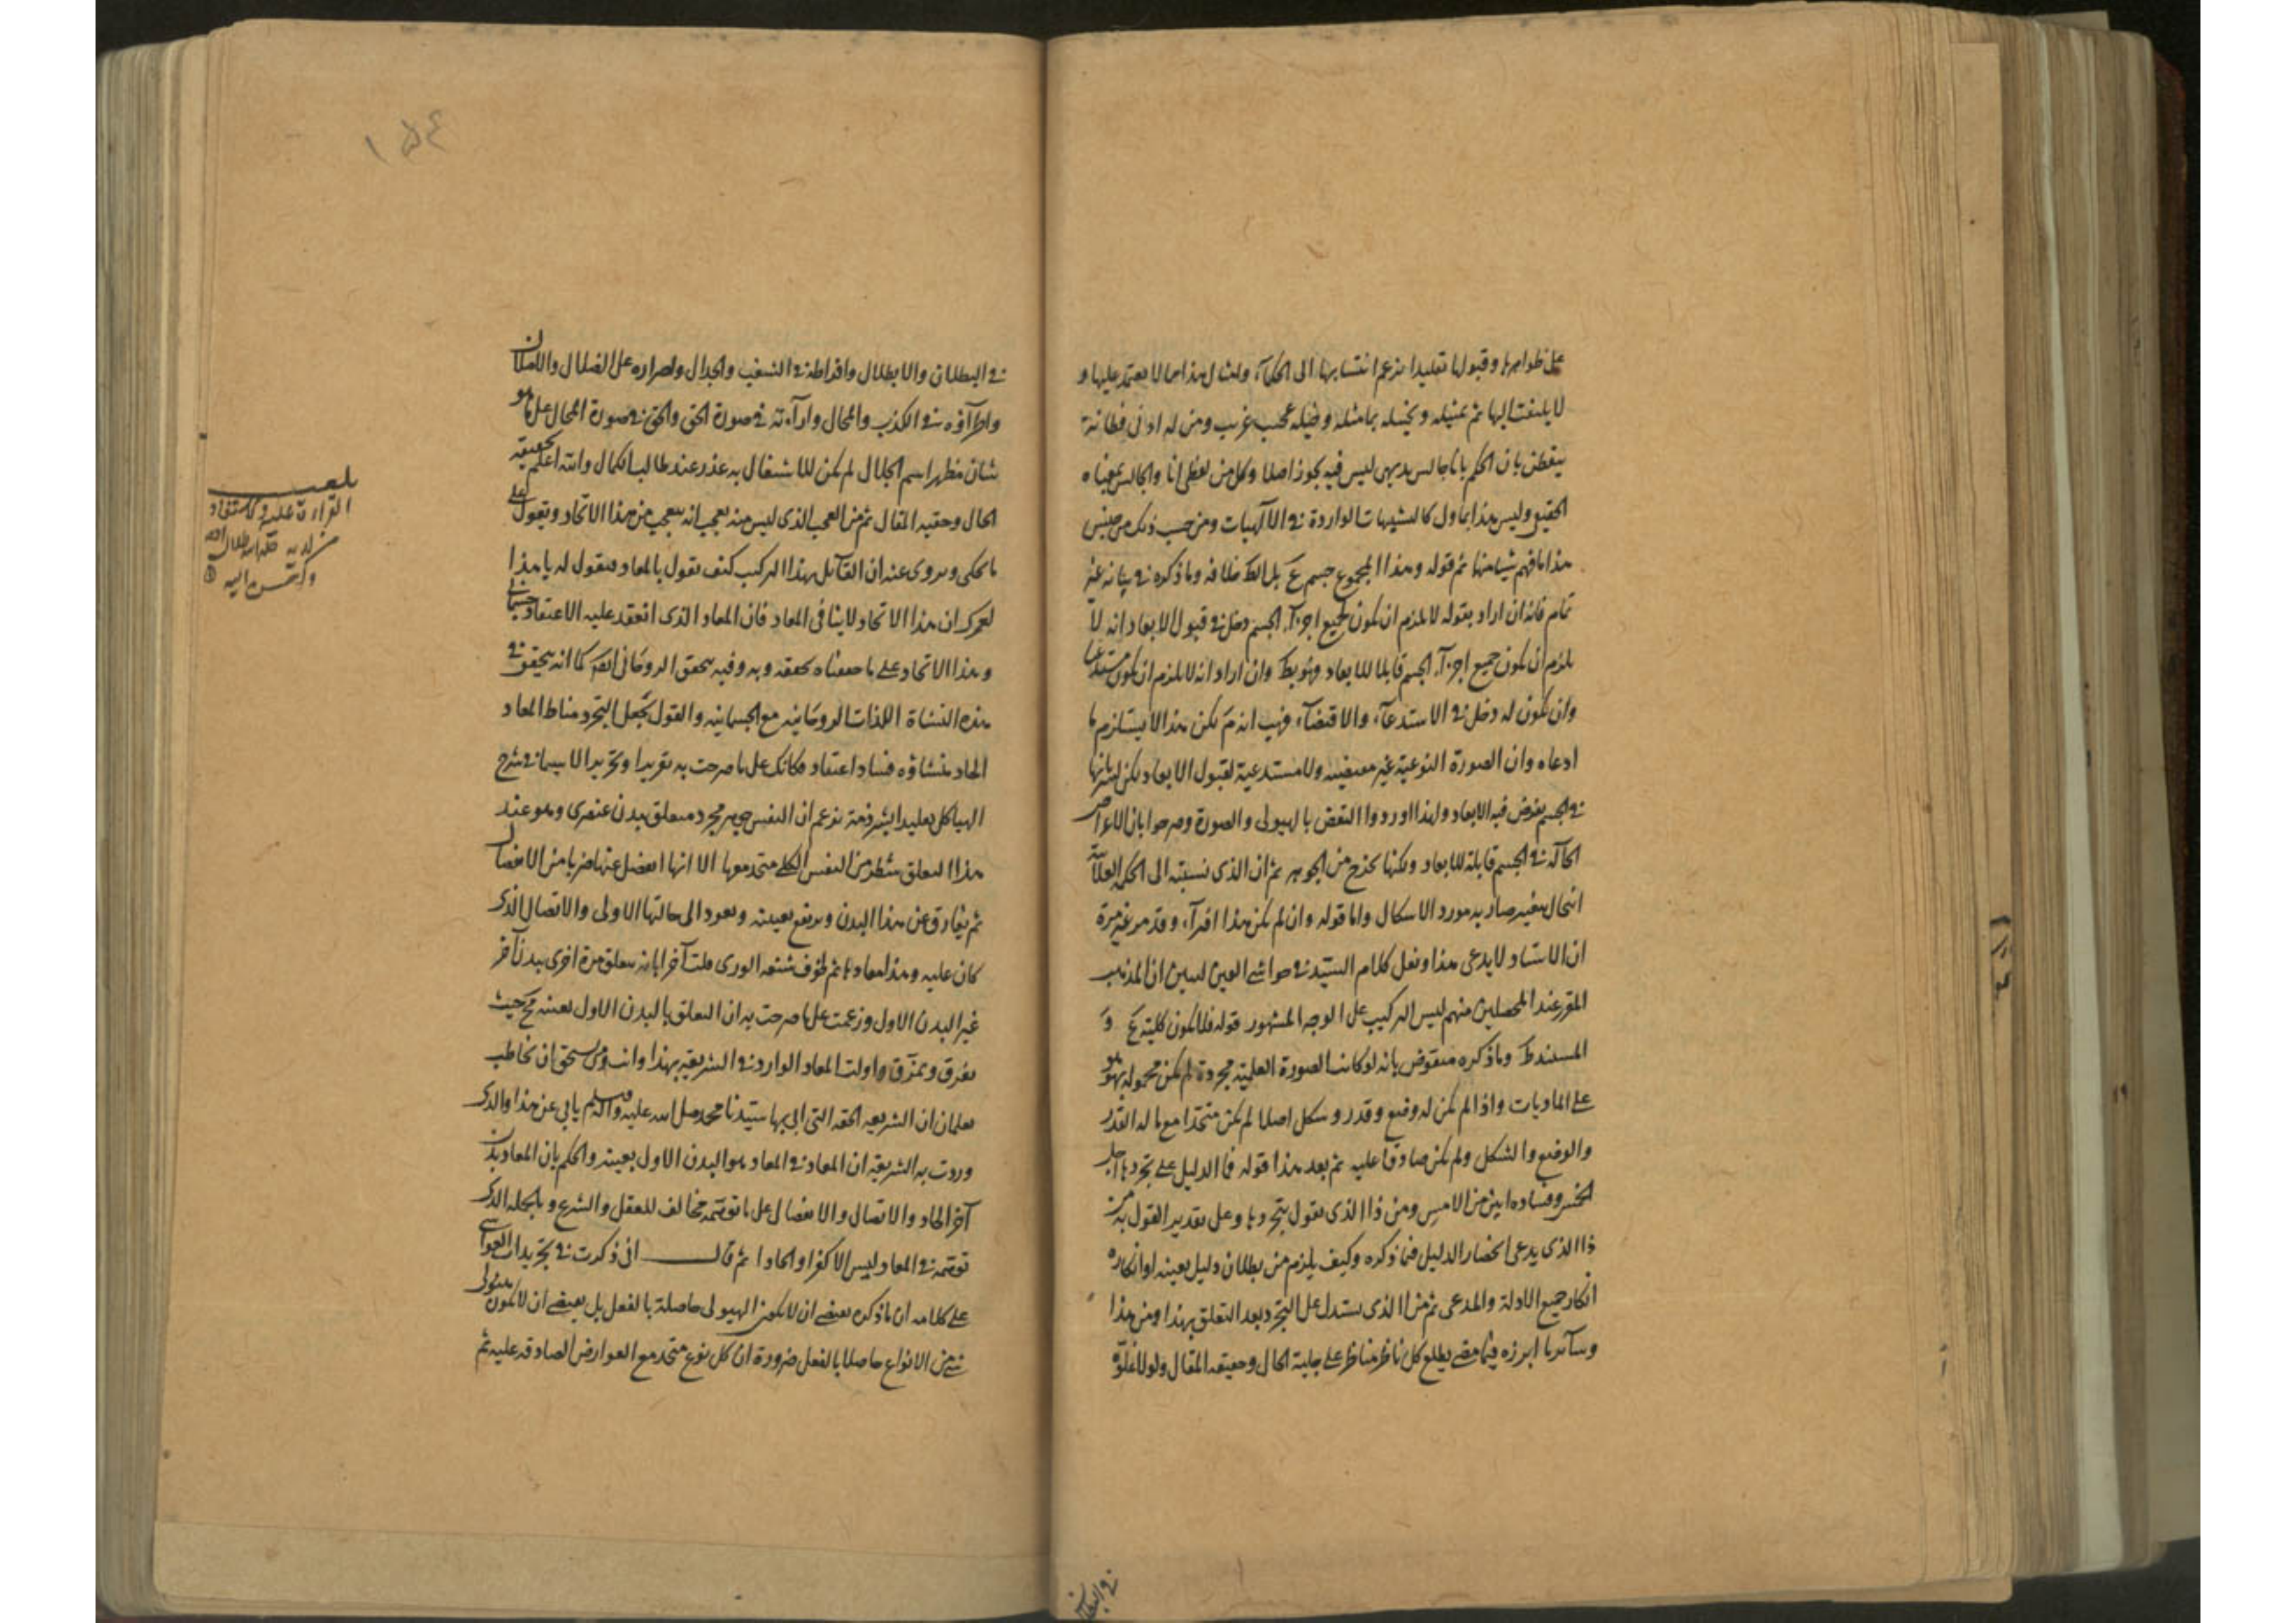 على ظواهرها وقبولها تقليدا بزعم انتسابها الى الحكمآء وامثال هذا مما لا يعتمد عليها و
لا يلتفت اليها ثم تمثيله وتخيله بما مثله وخيله عجيب غريب ومن له ادنى فطانة
يتفطن بان الحكم بانا جالس بديهى ليس فيه تجوز اصلا وكل من لفظى انا والجالس بمعناه
الحقيقى وليس هذا بماول كالتشبيهات الواردة فى الآلهيات ومن حسب ذلك من جنس
هذا ما فهم شيئا منها ثم قوله وهذا المجموع جسم ع بل الظ خلافه وما ذكره فى بيانه غير
تمام فانه ان اراد بقوله لا يلزم ان يكون لجميع اجزآء الجسم دخل فى قبول الابعاد انه لا
يلزم ان يكون جميع اجزآء الجسم قابلا للابعاد وان اراد انه لا يلزم ان يكون مستدعيا
وان يكون له دخل فى الاستدعآء والاقتضآء فهب انه م لكن هذا لا يستلزم ما
ادعاه وان الصورة النوعية غير مقتضية ولا مستدعية لقبول الابعاد لكن
فى الجسم يفرض فيه الابعاد ولهذا اوردوا النقض بالهيولى والصورة وصرحوا بان الاعراض
الحآلة فى الجسم قابلة للابعاد ولكنها تخرج من الجوهر ثم ان الذى نسبته الى الحكيم العلامة
انتحال صار به مورد الاشكال واما قوله وان لم يكن هذا افترآء وقد مر غير مرة
ان الاستاد لا يدعى هذا ونقل كلام السيد فى حواشى العين ليبين ان المذهب
المقرر عند المحصلين منهم ليس التركيب على الوجه المشهور قوله فلا يكون كليته ع و
المستند ظ وما ذكره منقوض بانه لو كانت الصورة العلمية مجردة لم يكن محمولة بهو هو
على الماديات واذا لم يكن له وضع وقدر وشكل اصلا لم يكن متحدا مع ما له القدر
والوضع والشكل ولم يكن صادقا عليه ثم بعد هذا قوله فما الدليل على تجردها
وفساده ابين من الامس ومن ذا الذى يقول بتجردها وعلى تقدير القول به من
ذا الذى يدعى انحصار الدليل فيما ذكره وكيف يلزم من بطلان دليل بعينه او انكاره
انكار جميع الادلة والمدعى ثم من الذى يستدل على التجرد بعد التعلق بهذا ومن هذا
وسآئر ما ابرزه فيما مضى يطلع كل ناظر مناظر على جلية الحال وحقيقة المقال ولولا غلوّه
فى البطلان
١٥٤
فى البطلان والابطال وافراطه فى الشغب والجدال واصراره على الضلال والاضلال
واطرآؤه فى الكذب والمحال وارآءته فى صورة الحق والحق فى صورة المحال على ما هو
شان مظهر اسم الجلال لم يكن للاشتغال به عذر عند طالب الكمال والله اعلم بحقيقة
الحال وحقية المقال ثم من العجب الذى ليس منه بعجيب انه يتعجب من هذا الاتحاد ويقول على
ما يحكى ويروى عنه ان القآئل بهذا التركيب كيف يقول بالمعاد فيقول له يا هذا
لعمرك ان هذا الاتحاد لا ينافى المعاد فان المعاد الذى انعقد عليه الاعتقاد جسمانى
وهذا الاتحاد على ما حققناه يحققه وبه وفيه يتحقق الروحانى ايضا كما انه يتحقق فى
هذه النشاة اللذات الروحانية مع الجسمانية والقول بجعل التجرد مناط المعاد
الحاد منشاؤه فساد اعتقاد فكانك على ما صرحت به تقريرا وتحريرا لا سيما فى شرح
الهياكل تقليدا لشرذمة تزعم ان النفس جوهر مجرد متعلق ببدن عنصرى وهو عند
هذا التعلق شطر من النفس الكلى متحد معها الا انها انفصل عنها ضربا من الانفصال
ثم يفارق عن هذا البدن ويرتفع تعينه ويعود الى حالتها الاولى والاتصال الذى
كان عليه وهذا معادها ثم لخوف شنعة الورى ملت آخرا بانه يتعلق مرة اخرى ببدن آخر
غير البدن الاول وزعمت على ما صرحت به ان التعلق بالبدن الاول بعينه مح حيث
تفرق وتمزق واولت المعاد الوارد فى الشريعة بهذا وانت ومن يستحق ان يخاطب
يعلمان ان الشريعة الحقة التى اتى بها سيدنا محمد صلى الله عليه وآله وسلم يابى عن هذا والذى
وردت به الشريعة ان المعاد فى المعاد هو البدن الاول بعينه والحكم بان المعاد بدن
آخر الحاد والاتصال والانفصال على ما توهمه مخالف للعقل والشرع وبالجملة الذى
توهمه فى المعاد ليس الا كفرا والحادا ثم قال انى ذكرت فى تجريد الغواشى
على كلامه ان ما ذكره يقتضى ان لا يكون الهيولى حاصلة بالفعل بل يقتضى ان لا يكون هيولى
شئ من الانواع حاصلا بالفعل ضرورة ان كل نوع متحد مع العوارض الصادقة عليه ثم
بلغت
القراءة عليه والاستفادة